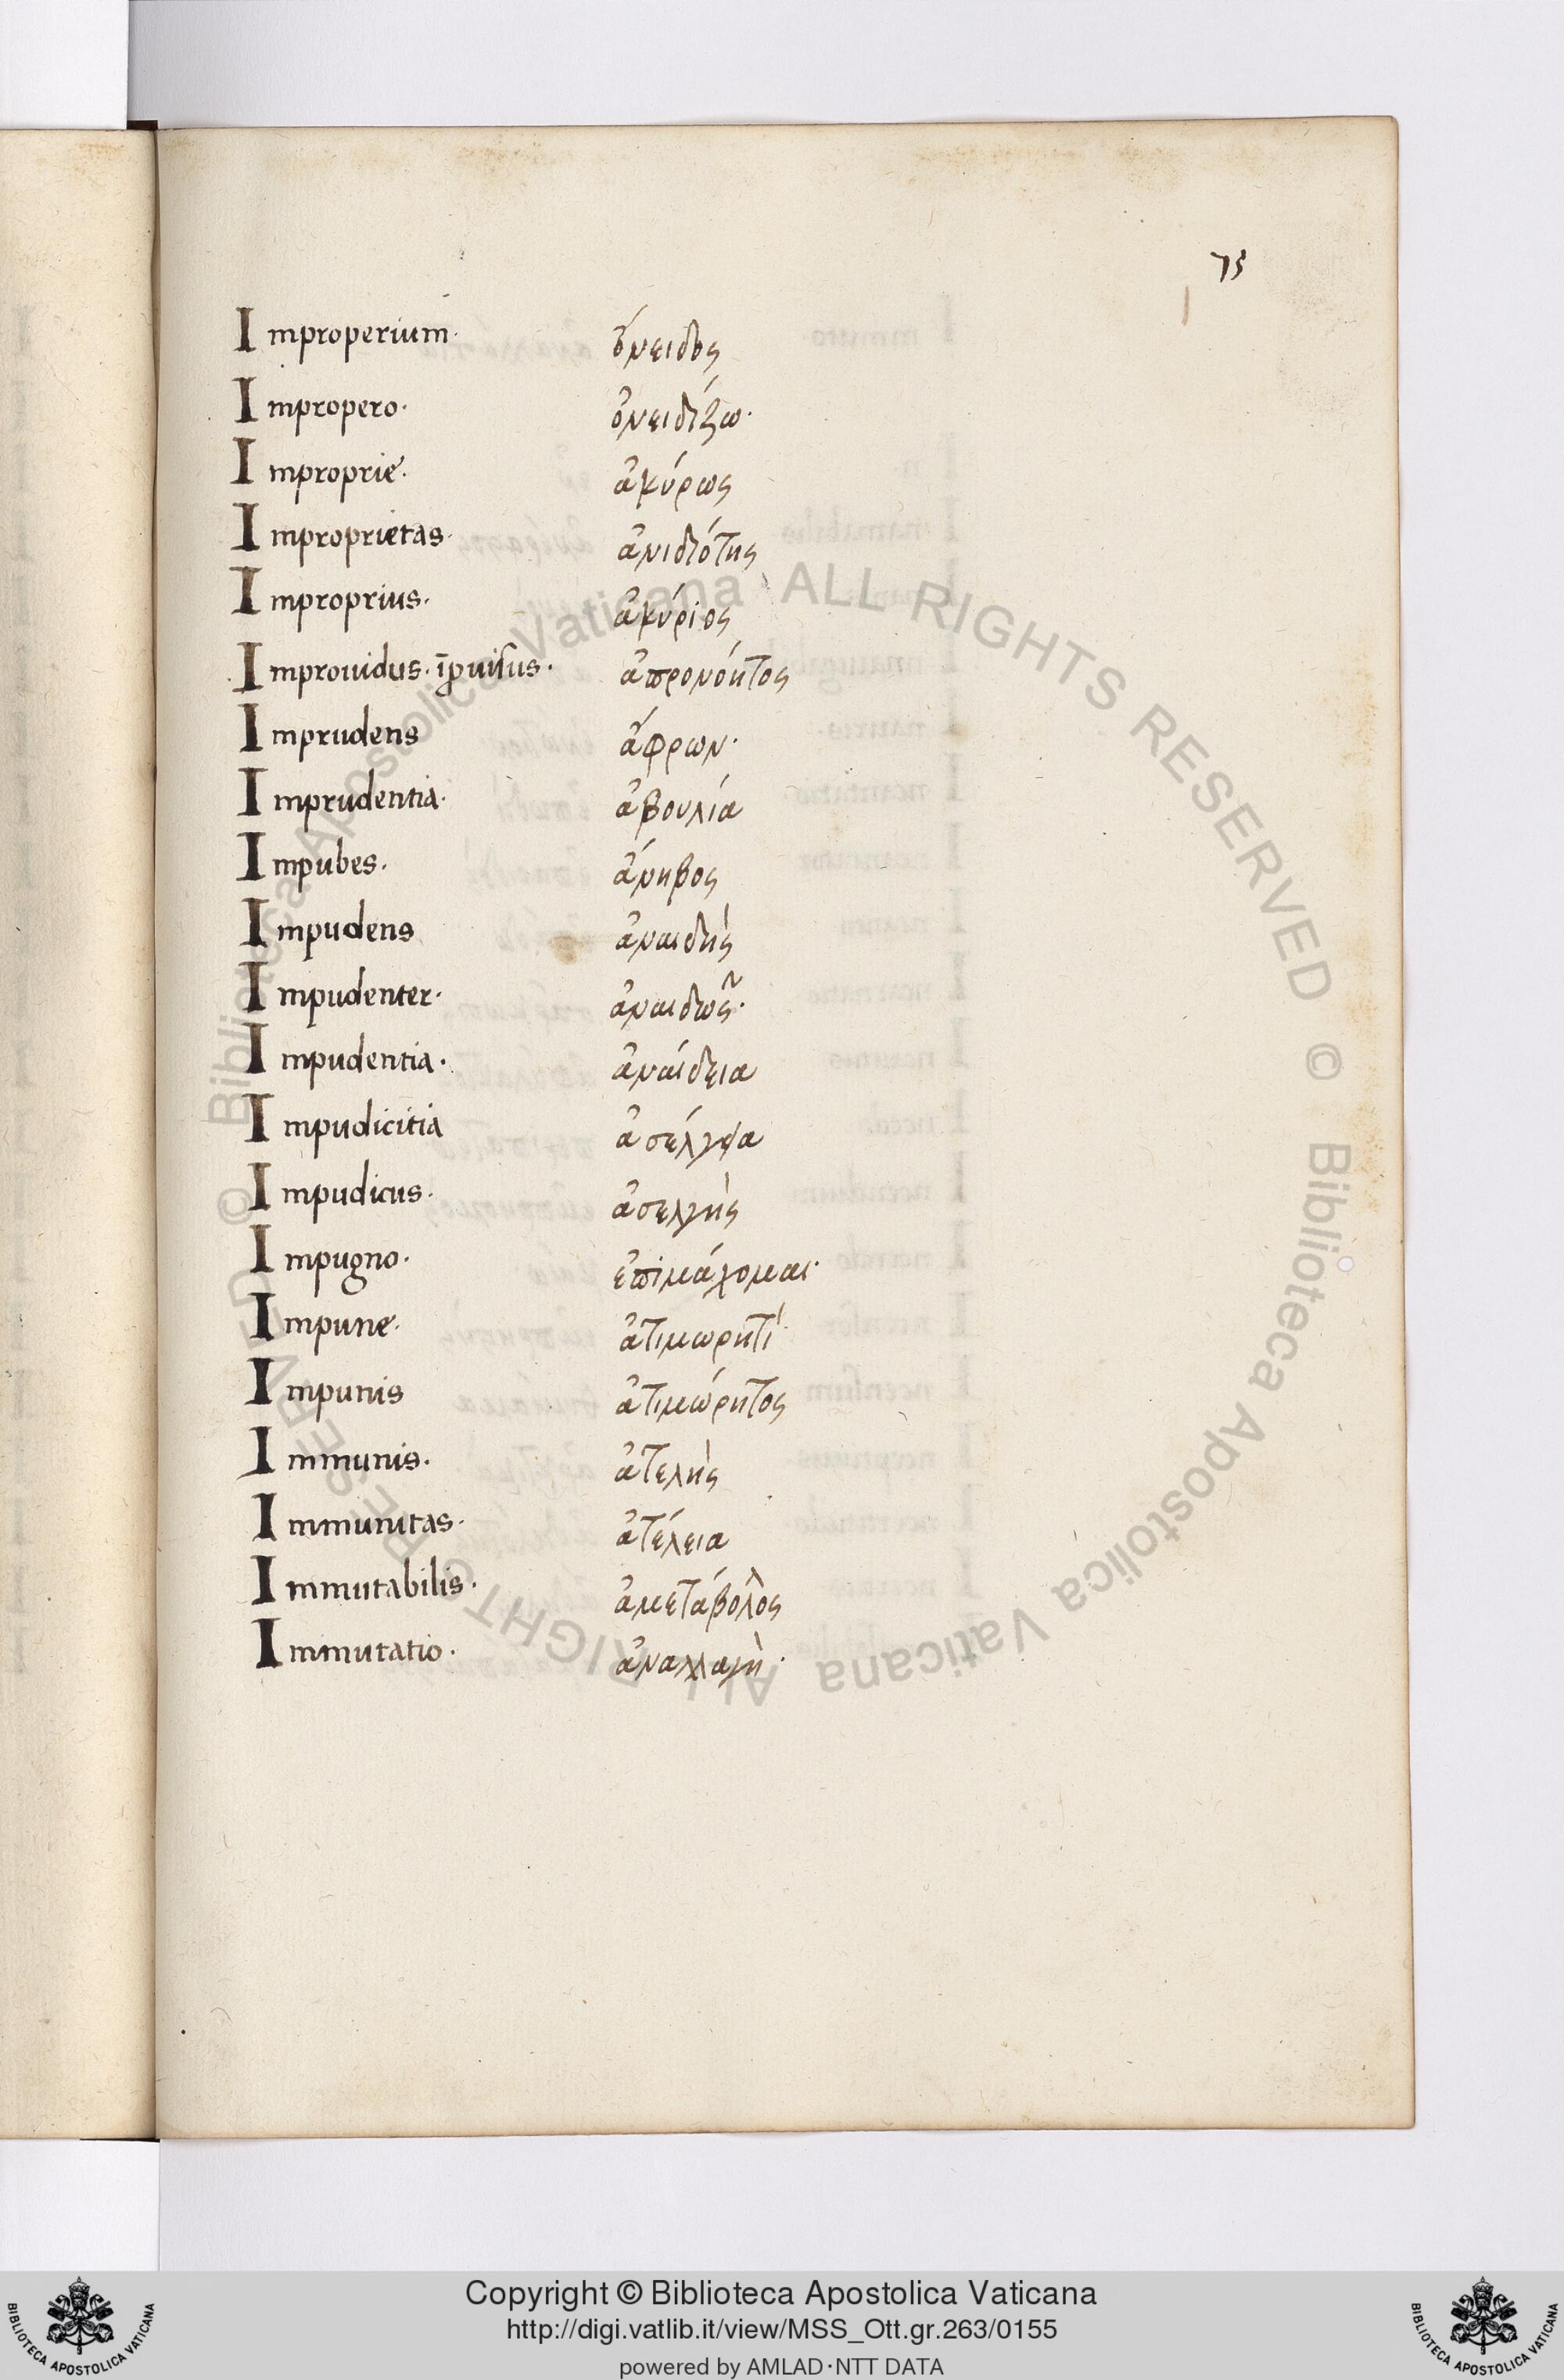 73
Improperium· ὄνειδος
Impropero· ὀνειδίζω·
Improprie· ἀκύρως
Improprietas· ἀνιδιότης
Improprius· ἀκύριος
Improuidus· īꝓuisus· ἀπρονόητος
Imprudens ἄφρων·
Imprudentia· ἀβουλία
Impubes· ἄνηβος
Impudens ἀναιδὴς
Impudenter· ἀναιδῶς·
Impudentia· ἀναίδεια
Impudicitia ἀσέλγεια
Impudicus· ἀσελγὴς
Impugno· ἐπιμάχομαι·
Impune· ἀτιμωρητὶ
Impunis ἀτιμώρητος
Immunis· ἀτελὴς
Immunitas· ἀτέλεια
Immutabilis· ἀμετάβολος
Immutatio· ἀναλλαγὴ·
© Biblioteca Apostolica Vaticana ALL RIGHTS RESERVED © Biblioteca Apostolica Vaticana ALL RIGHTS RESERVED
Copyright © Biblioteca Apostolica Vaticana
http://digi.vatlib.it/view/MSS_Ott.gr.263/0155
powered by AMLAD·NTT DATA
BIBLIOTECA APOSTOLICA VATICANA
BIBLIOTECA APOSTOLICA VATICANA